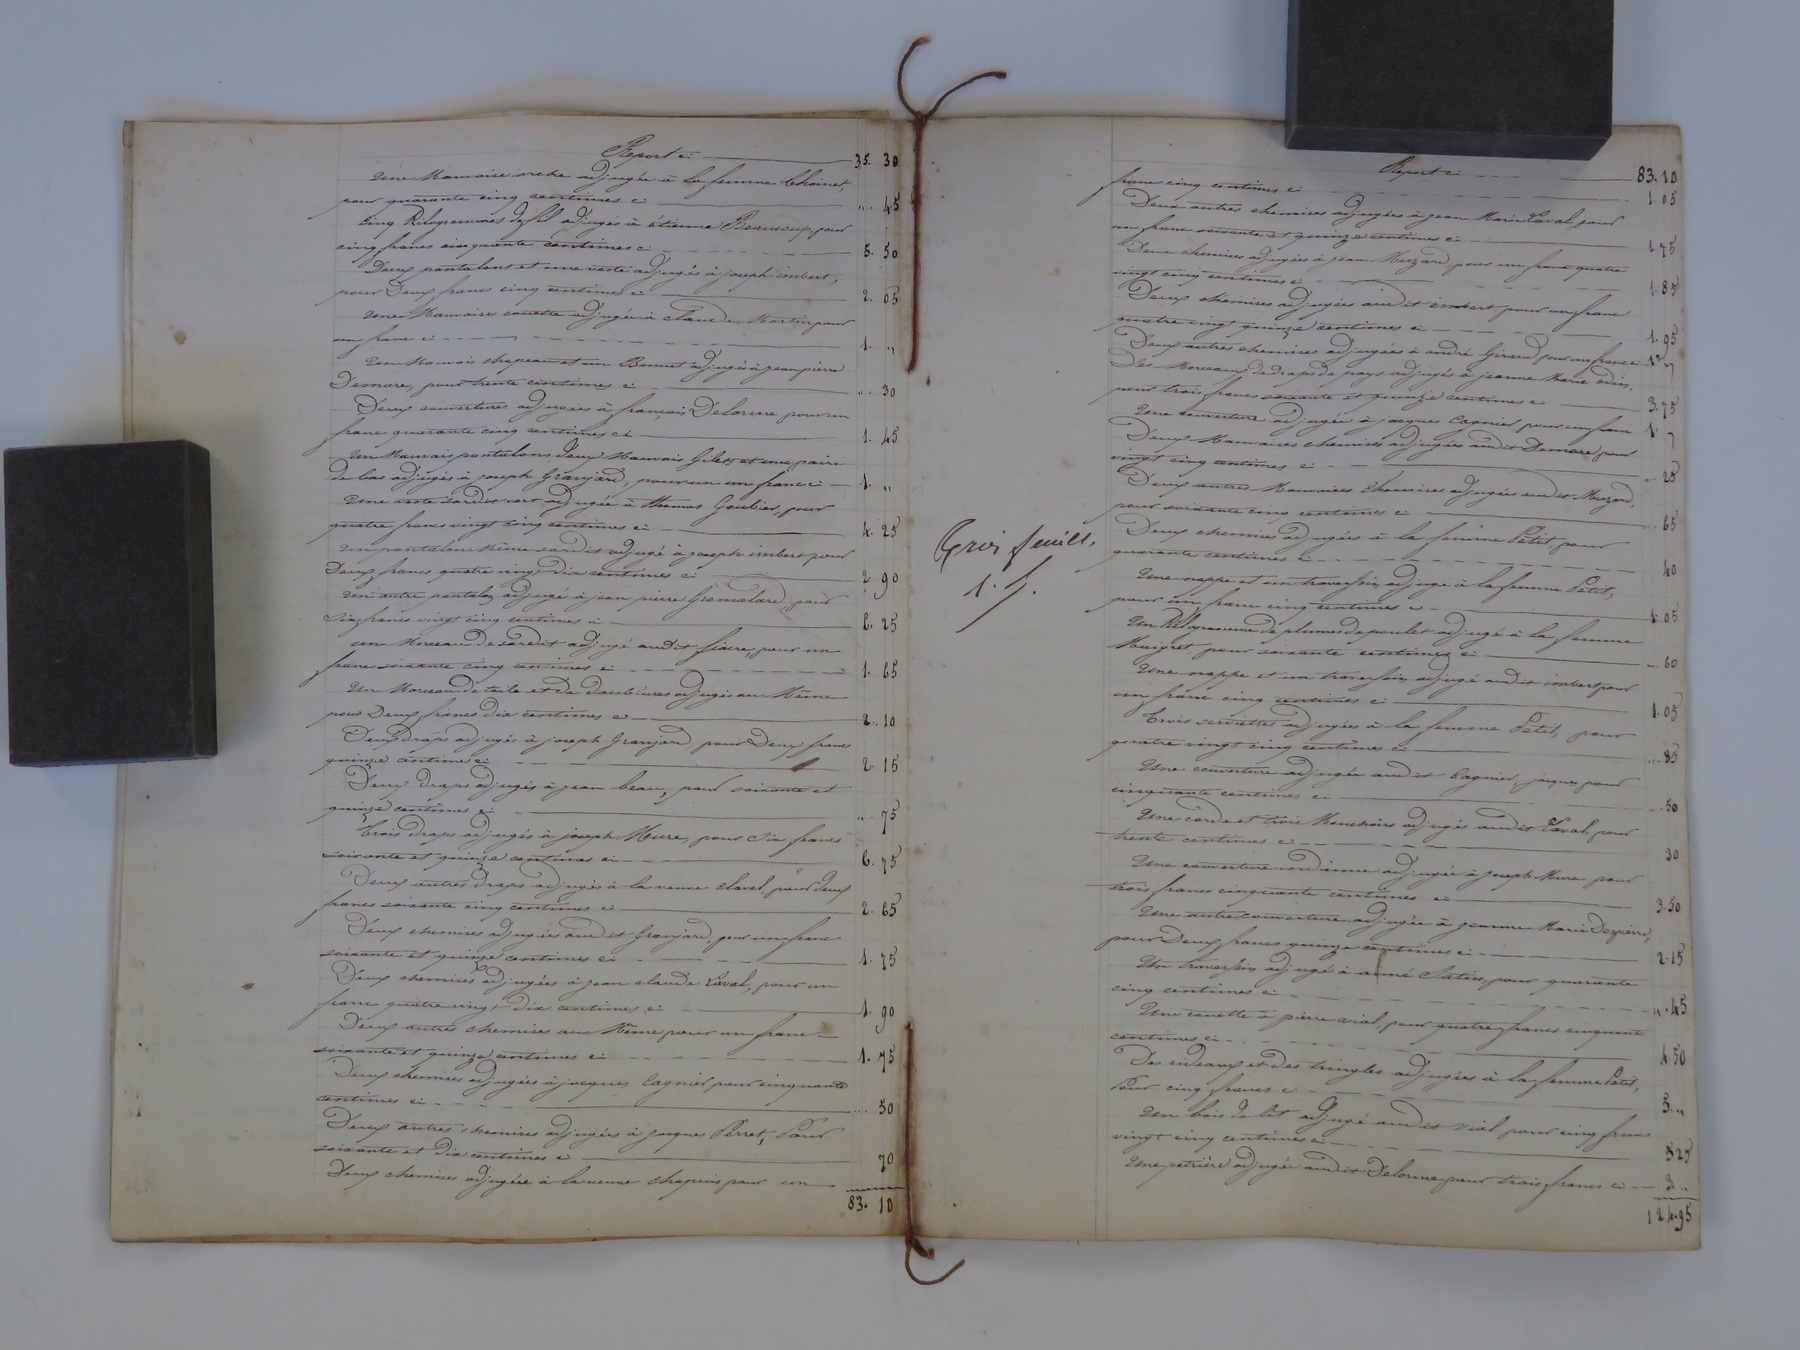 Report ci 35. 30
Une Mauvaise arche adjugée à la femme Choinet
pour quarante cinq centimes ci ,, 45
Cinq Kilogrammes de fil adjugés à étienne Beaucoup, pour
cinq francs cinquante centimes ci 5. 50
Deux pantalons et une veste adjugés à joseph imbert,
pour Deux francs cinq centimes ci 2. 05
Une Mauvaise couette adjugée à Claude Martin pour
un franc ci 1. ,,
Un Mauvais chapeau et un Bonnet adjugés à jean pierre
Demare, pour trente centimes ci ,, 30
Deux couvertures adjugées à françois Delorme pour un
franc quarante cinq centimes ci 1. 45
Un Mauvais pantalons Deux Mauvais Gilets et une paire
de bas adjugés à joseph Granjard, pour un franc ci 1. ,,
Une veste sardis vert adjugée à thomas Goubier, pour
quatre francs vingt cinq centimes ci 4. 25
un pantalon Même sardis adjugé à joseph imbert pour
Deux francs quatre vingt dix centimes ci 2. 90
un autre pantalon adjugé à jean pierre pour
Six francs vingt cinq centimes ci 6. 25
un Morceau de sardis adjugé audit pour un
franc soixante cinq centimes ci 1. 65
Un Morceau de toile et de Doublures adjugés au Même
pour Deux francs Dix centimes ci 2. 10
Deux Draps adjugés à joseph Granjard pour Deux francs
quinze centimes ci 2. 15
Deux Draps adjugés à jean beau, pour soixante et
quinze centimes ci ,, 75
Trois Draps adjugés à joseph Mure, pour Six francs
soixante et quinze centimes ci 6. 75
Deux autres Draps adjugés à la veuve Clavel, pour Deux
francs soixante cinq centimes ci 2. 65
Deux chemises adjugées audit Granjard, pour un franc
soixante et quinze centimes ci 1. 75
Deux chemises adjugées à jean claude Laval, pour un
franc quatre vingt dix centimes ci 1. 90
Deux autres chemises au Même pour un franc
soixante et quinze centimes ci 1. 75
Deux chemises adjugées à jacques Cagnier pour cinquante
centimes ci 50
Deux autres chemises adjugées à jacques Perret, Pour
soixante et Dix centimes ci 70
Deux chemises adjugées à la veuve chapuis pour un
83. 10
Report ci 83. 10
franc cinq centimes ci 1. 05
Deux autres chemises adjugées à jean Marie Laval, pour
un franc soixante et quinze centimes ci 1. 75
Deux chemises adjugées à jean Muzard, pour un franc quatre
vingt cinq centimes ci 1. 85
Deux chemises adjugées audit imbert pour un franc
quatre vingt quinze centimes ci 1. 95
Deux autres chemises adjugées à andré Giraud, pour un franc ci 1. ,,
Des Morceaux de draps de pays adjugés à jeanne Marie odin,
pour trois francs soixante et quinze centimes ci 3. 75
Une couverture adjugée à jacques Cagnier, pour un franc 1. ,,
Deux Mauvaises chemises adjugées audit Demare pour
vingt cinq centimes ci 25
Deux autres Mauvaises chemises adjugées audit Muzard,
pour soixante cinq centimes ci 65
Trois feuilles,
Deux chemises adjugées à la femme Petit, pour
quarante centimes ci 40
Une nappe et un traversin adjugé à la femme Petit,
pour un franc cinq centimes ci 1. 05
Un Kilogramme de plumes de poulet adjugé à la femme
Maigret pour soixante centimes ci 60
Une nappe et un traversin adjugé audit imbert pour
un franc cinq centimes ci 1. 05
Trois serviettes adjugées à la femme Petit, pour
quatre vingt cinq centimes ci 85
Une couverture adjugée audit Cagnier, jacques, pour
cinquante centimes ci 50
Une corde et trois Mouchoirs adjugés audit Laval, pour
trente centimes ci 30
Une couverture indienne adjugée à joseph Mure pour
trois francs cinquante centimes ci 3. 50
Une autre couverture adjugée à jeanne Marie Depierre,
pour Deux francs quinze centimes ci 2. 15
Un traversin adjugé à aimé pour quarante
cinq centimes ci ,, 45
Une couette à pierre vial, pour quatre francs cinquante
centimes ci 4. 50
Des rideaux et des tringles adjugées à la femme Petit,
Pour cinq francs ci 5. ,,
Un bois de lit adjugé audit vial pour cinq francs
vingt cinq centimes ci 5 25
Une petrière adjugée audit Delorme pour trois francs ci 3. ,,
124. 95